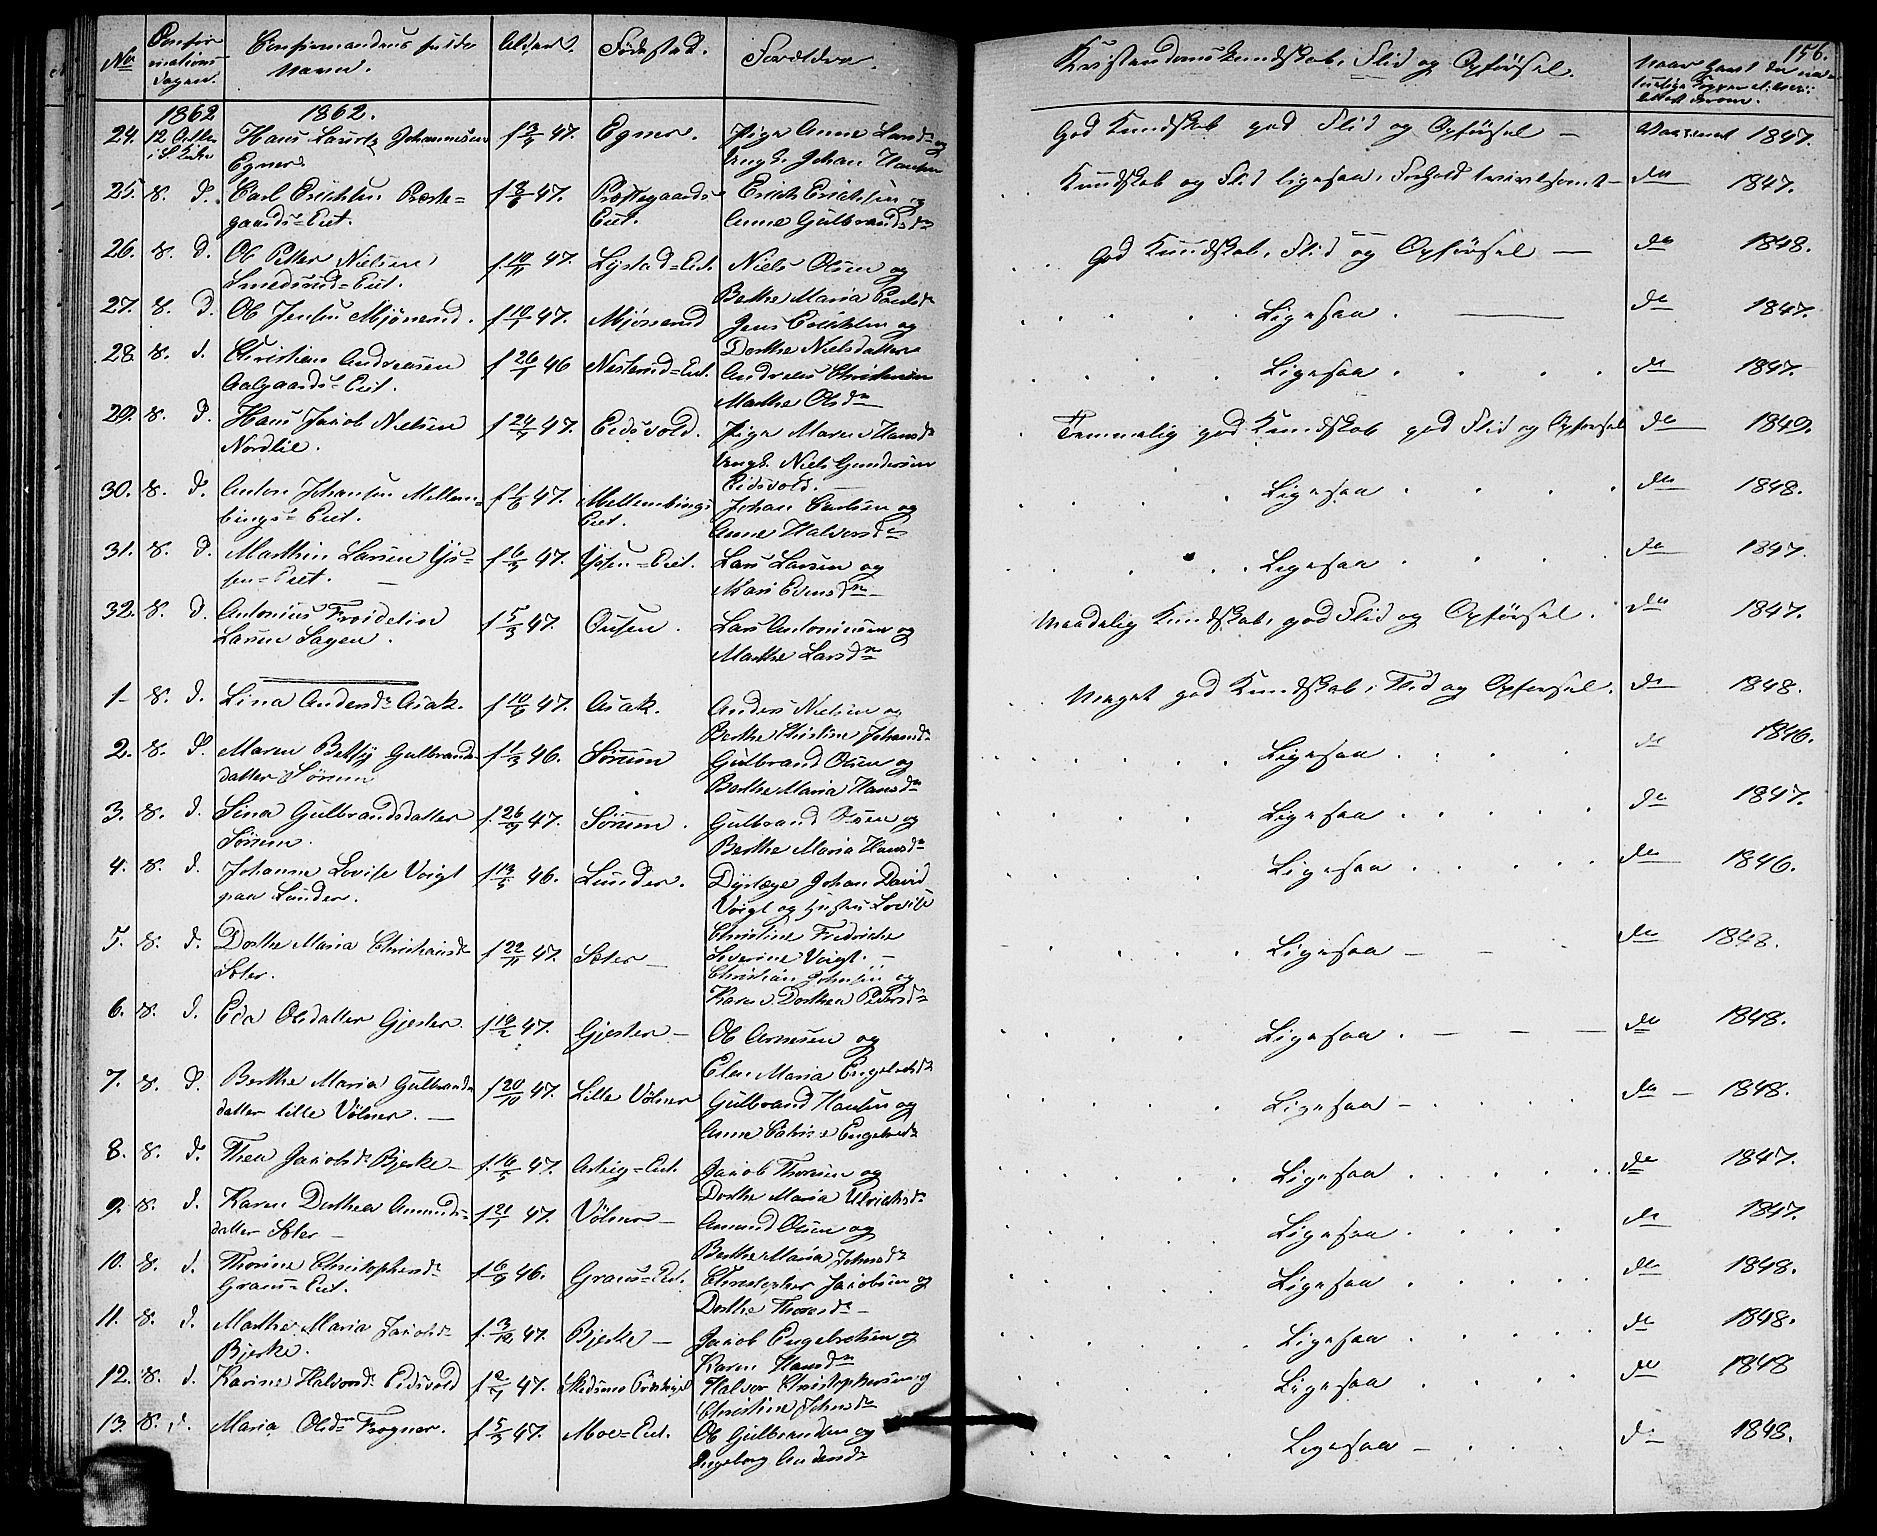 No Confirmations Dagen. Confirmandens fulde Navn. Alder. Fødested. Forældre. Kristendoms Kundskab, Flid og Opførsel. 156.
1862 1862.
24. 12 Octbr i S. Kirke Hans Lauritz Johannesen Egner. f 3/5 47. Egner. Pige Anne Larsdr og Ungk. Johan Hansen God Kundskab god Flid og Opførsel — Vaccineret 1847.
25. s. D. Carl Erichsen Præstegaards-Eiet. f 8/6 47. Præstegaards-Eiet. Erich Erichsen og Anne Gulbrandsdr Kundskab og Flid ligesaa, Forhold tvivlsomt — do 1847.
26. s. D. Ole Petter Nielsen Smedsrud-Eiet. f. 10/11 47. Lystad-Eiet. Niels Olsen og Berthe Maria God Kundskab, Flid og Opførsel — do 1848.
27. s. D. Ole Jensen Mjønerud. f 10/1 47. Mjønerud Jens Erichsen og Dorthe Nielsdatter Ligesaa. do 1847.
28. s. d. Christian Andreasen Aalgaards-Eiet. f 26/1 46 Nesterud-Eiet. Andreas Christensen Marthe Olsdr Ligesaa. do 1847.
29. s. D. Hans Jacob Nielsen Nordlie. f 24/4 47. Eidsvold. Pige Maren Hansdr Ungk. Niels Gundersen Eidsvold. Temmelig god Kundskab god Flid og Opførsel do 1849.
30. s. D. Anton Johansen Mellembings-Eiet. f 1/6 47. Mellembings Eiet. Johan Carlsen og Anne Halvorsdr Ligesaa do 1848.
31. s. D. Marthin Larsen Ijssen-Eiet. f 6/3 47. Ijssen-Eiet. Lars Larsen og Mari Evensdr Ligesaa do 1847.
32. s. D. Antonius Larsen Sagen. f 5/3 47. Lars Antoniusen og Marthe Larsdr Maadelig Kundskab, god Flid og Opførsel. do 1847.
1 s. d. Lina Andersdr Asak. f 10/6 47. Asak. Anders Nielsen og Berthe Christine Johansdr Meget god Kundskab, Flid og Opførsel. do 1848.
2. s. D. Maren Betsy Gulbrandsdatter Sørum f 1/3 46. Sørum Gulbrand Olsen og Berthe Maria Hansdr Ligesaa do 1846.
3. s. d. Sina Gulbrandsdatter Sørum. f. 26/9 47. Sørum. Gulbrand Olsen og Berthe Maria Hansdr Ligesaa do 1847.
4. s. d. Johanne Lovise Voigt paa Lunder. f 13/5 46. Lunder. Dyrlæge Johan David Voigt og Hustru Lovise Christine Fredrikke Severine Voigt. — Ligesaa do 1846.
5. s. d. Dorthe Maria Christiansdr Soter. f 22/11 47. Soter — Christian Johnsen og Karen Dorthea Pedersdr Ligesaa — do 1848.
6. s. d. Eda Olsdatter Gjester f 19/2 47. Gjester — Ole Arnesen og Elen Maria Engebretsdr Ligesaa. do 1848.
7. s. D. Berthe Maria Gulbrandsdatter lille Vølner. — f 20/10 47. Lille Vølner Gulbrand Hansen og Anne Engebretsdr Ligesaa — do — 1848.
8. s. d. Thea Jacobsdr Bjerke — f. 16/5 47. Asteig-Eiet. Jacob Thoresen og Dorthe Maria Ulriksdr Ligesaa do 1847.
9. s. d. Karen Dorthea Amundsdatter Soter — f 21/1 47. Vølner — Amund Olsen og Berthe Maria Johnsdr Ligesaa do 1847.
10. s. d. Thorine Christophersdr Graus-Eiet. f 6/9 46. Graus-Eiet. Christopher Jacobsen og Dorthe Thoresdr — Ligesaa do 1848.
11. s. d. Marthe Maria Jacobsdr Bjerke. f. 3/12 47. Bjerke — Jacob Engebretsen og Karen Hansdr Ligesaa do 1848.
12. s. d. Karine Halvorsdr Eidsvold f 2/7 47. Skedsmo Præstegjeld Halvor Christophersen og Christine Johnsdr Ligesaa do 1848
13. s. d. Maria Olsdr Frogner. f 5/3 47. Moe-Eiet. Ole Gulbrandsen og Ingeborg Andersdr Ligesaa — do 1848.